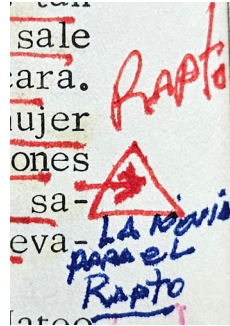 tan
sale
cara.
ujer
ones
sa-
eva-
Mateo
Rapto
LA NOVIA
PARA EL
RAPTO